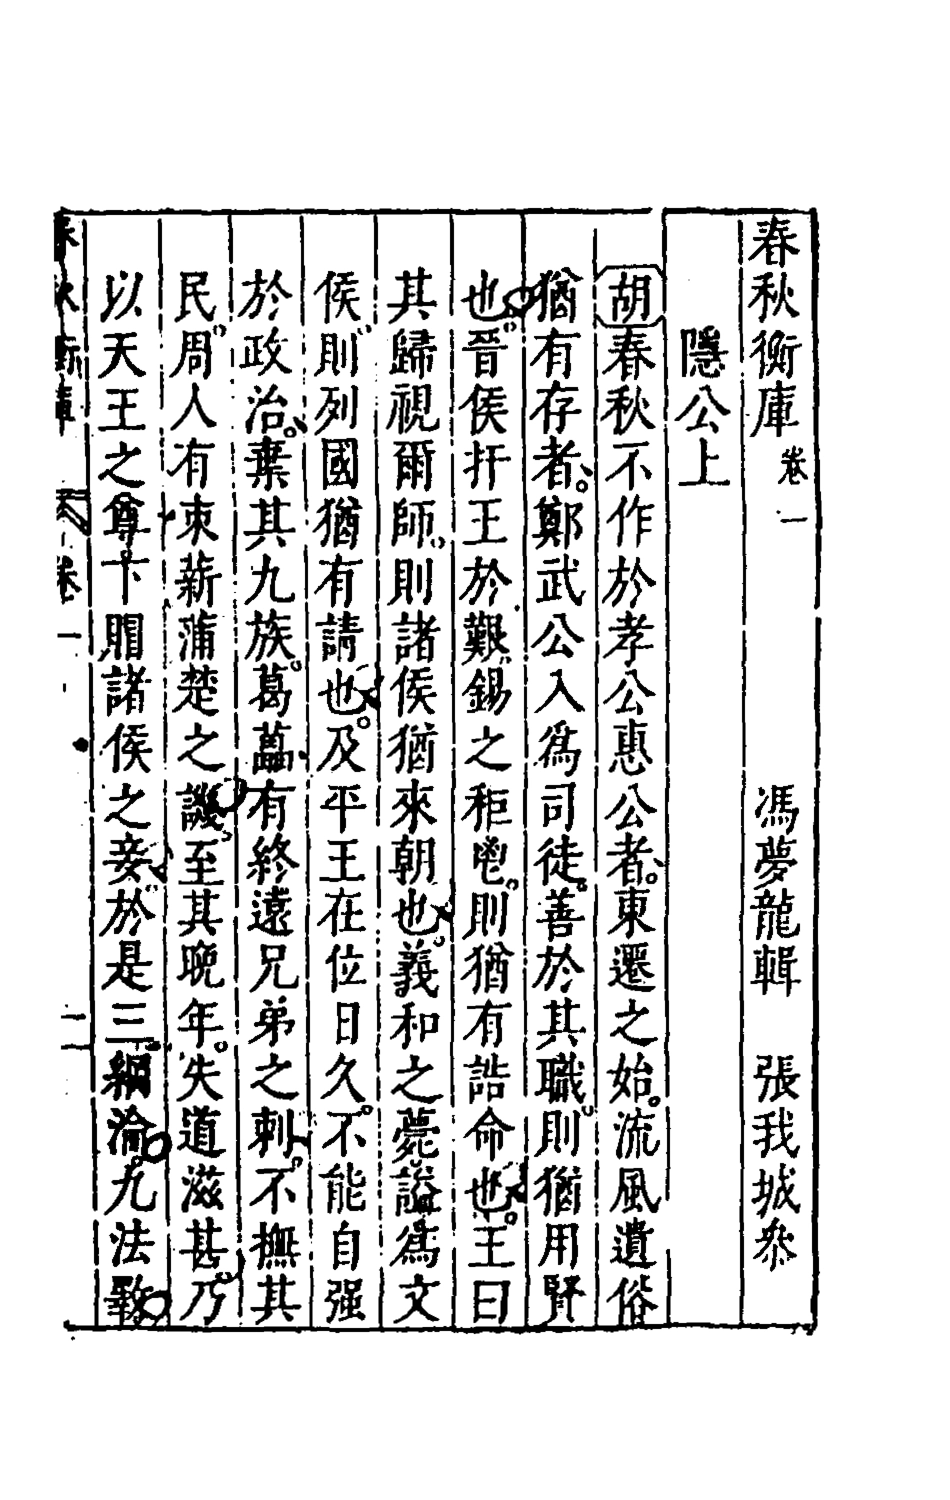 春秋衡庫 卷一 馮夢龍輯 張我城叅
隱公上
胡春秋不作於孝公惠公者東遷之始流風遺俗
猶有存者鄭武公入爲司徒善於其職則猶用賢
也晉侯扞王於艱錫之秬鬯則猶有誥命也王曰
其歸視爾師則諸侯猶來朝也義和之薨諡爲文
侯則列國猶有請也及平王在位日久不能自强
於政治棄其九族葛藟有終遠兄弟之刺不撫其
民周人有束薪蒲楚之譏至其晚年失道滋甚乃
以天王之尊下賵諸侯之妾於是三綱淪九法斁
春秋衡庫 卷一 一